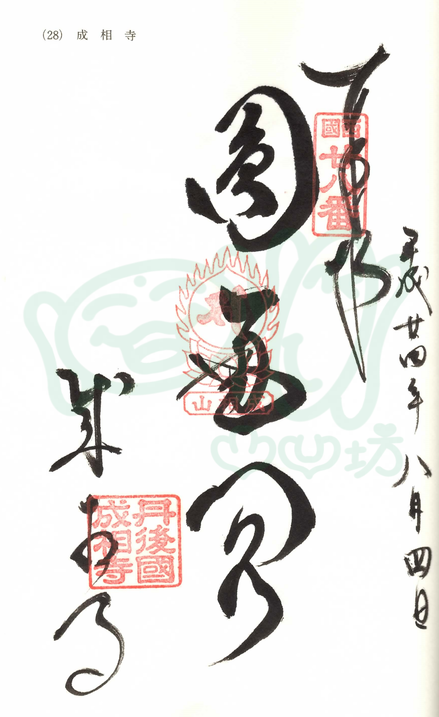 (28) 成相寺
奉拝
西國
廿八番
平成廿四年八月四日
圓通閣
成相山
成相寺
丹後國
成相寺
山山坊